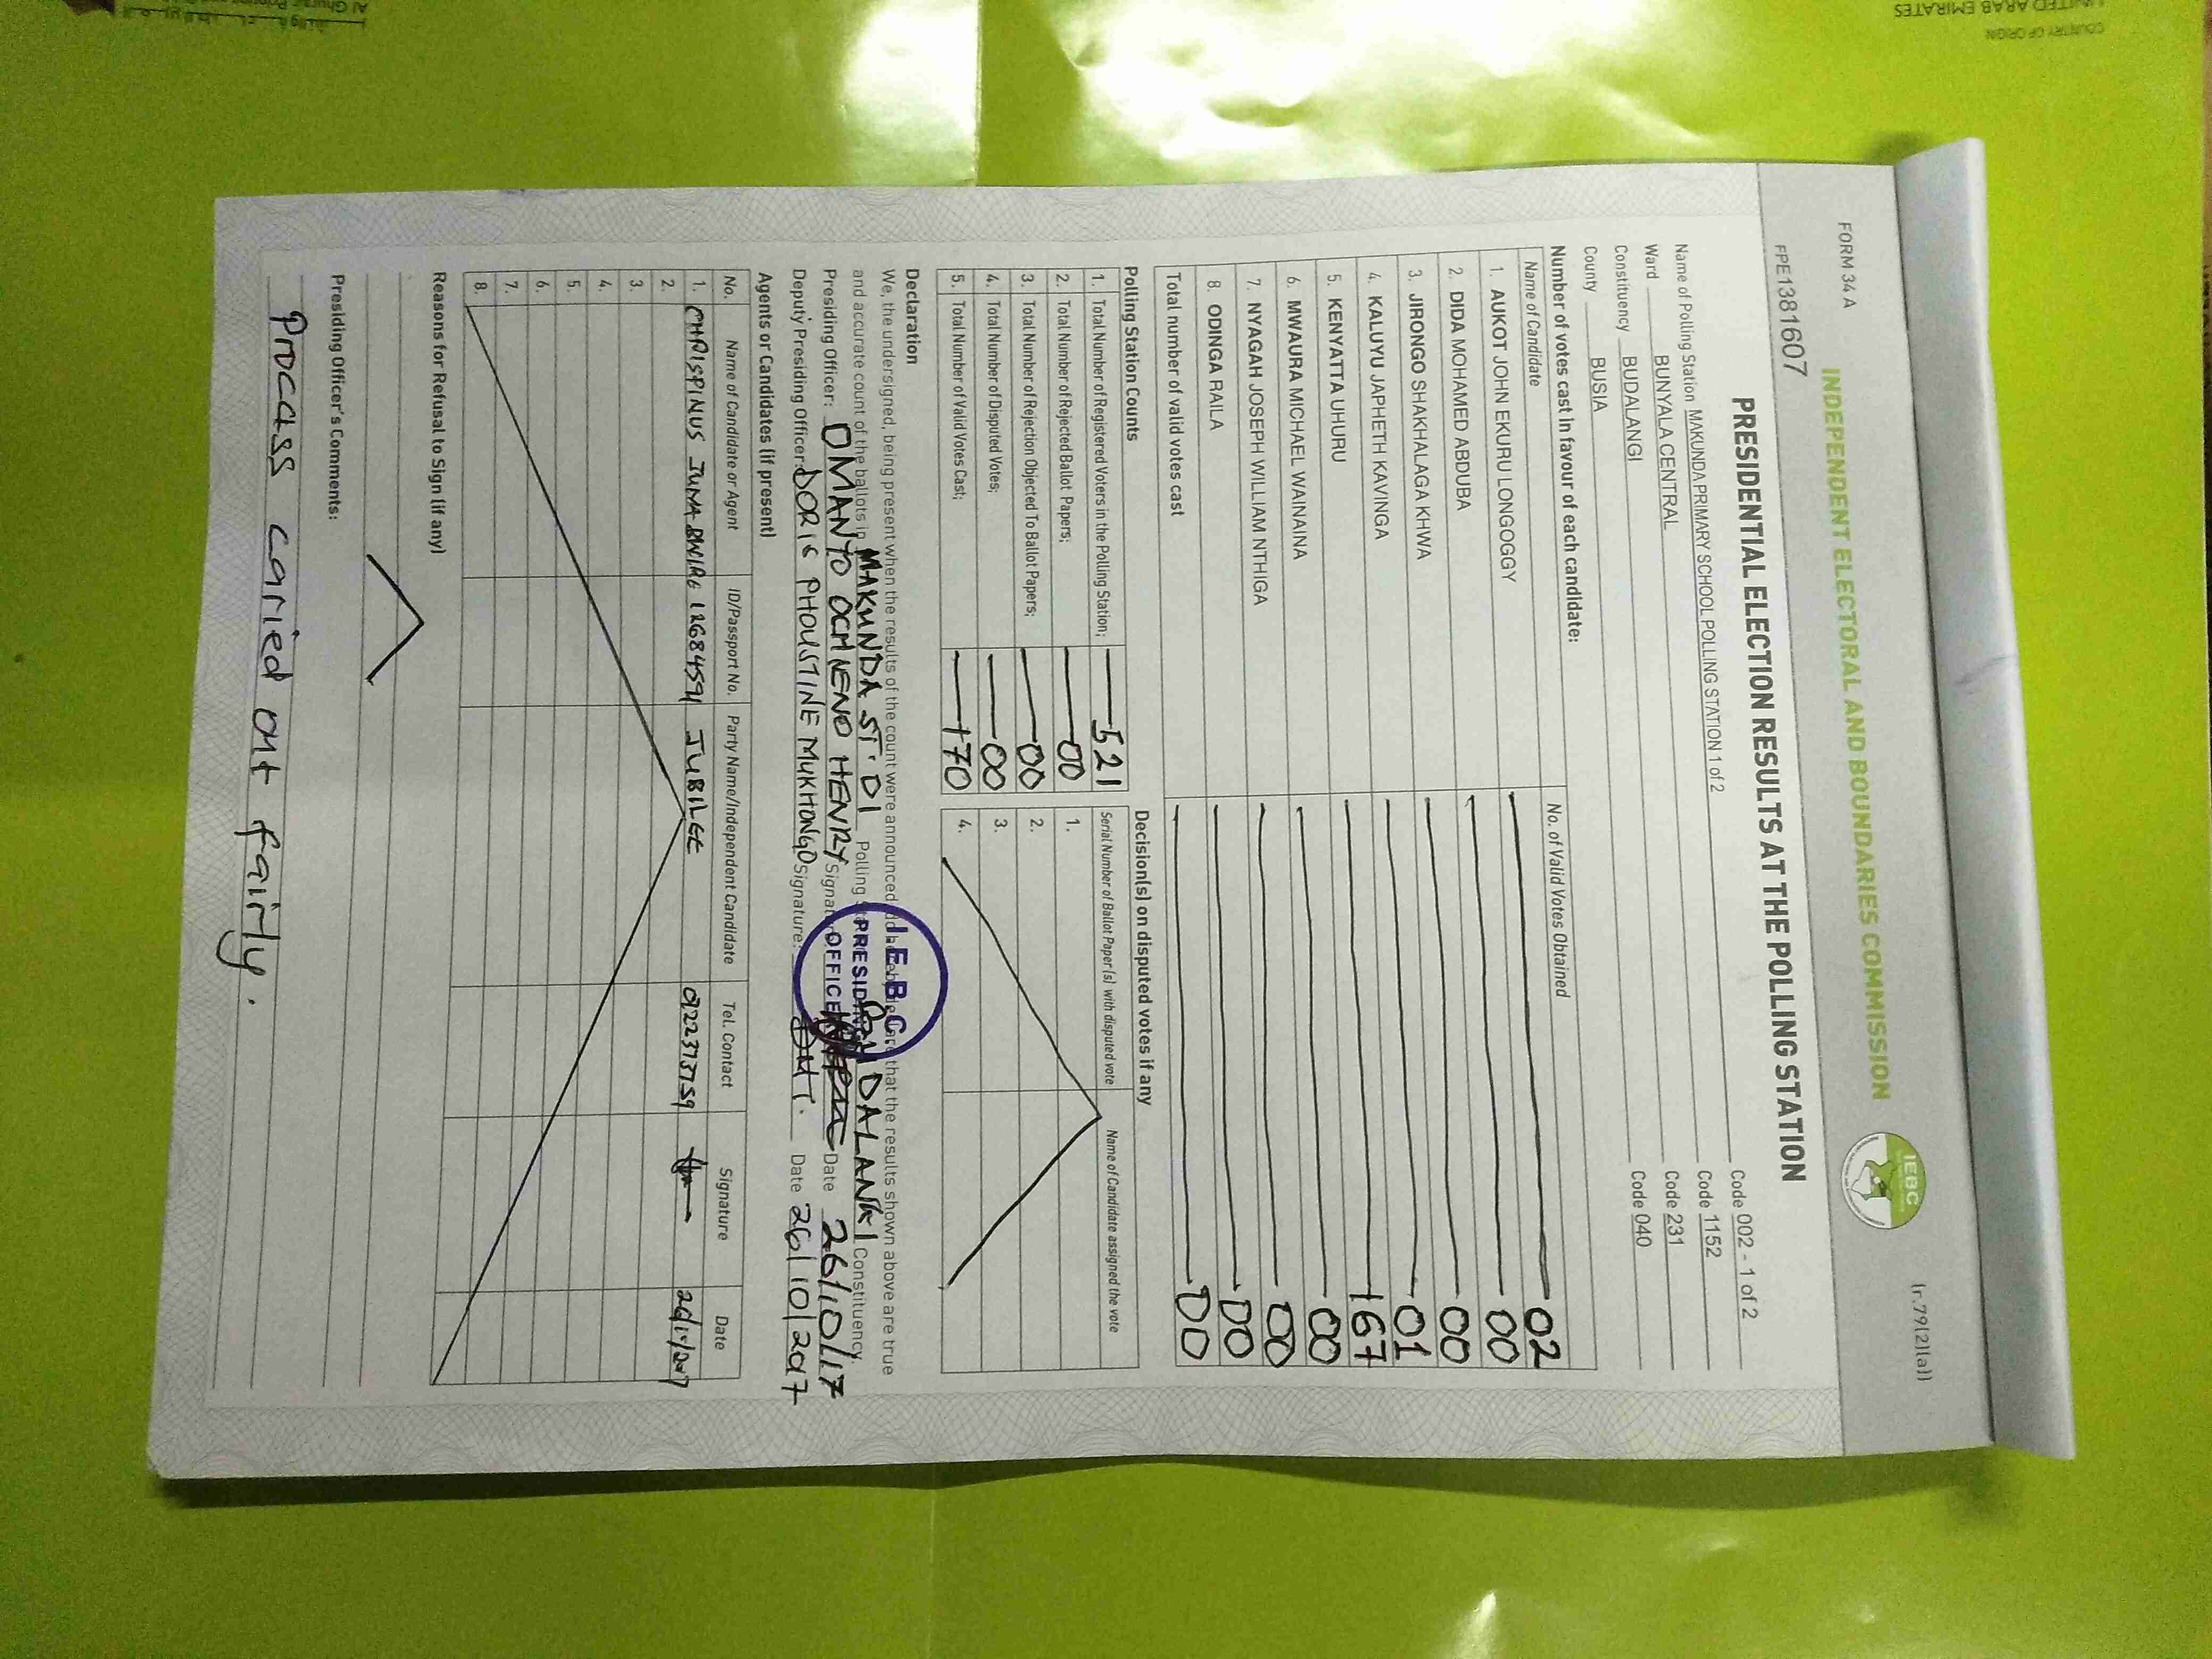 COUNTRY OF ORIGIN
UNITED ARAB EMIRATES
FORM 34 A
(r.79(2)(a))
INDEPENDENT ELECTORAL AND BOUNDARIES COMMISSION
IEBC
FPE1381607
PRESIDENTIAL ELECTION RESULTS AT THE POLLING STATION
Name of Polling Station MAKUNDA PRIMARY SCHOOL POLLING STATION 1 of 2 Code 002 - 1 of 2
Ward BUNYALA CENTRAL Code 1152
Constituency BUDALANGI Code 231
County BUSIA Code 040
Number of votes cast in favour of each candidate:
Name of Candidate No. of Valid Votes Obtained
1. AUKOT JOHN EKURU LONGOGGY 02
2. DIDA MOHAMED ABDUBA 00
3. JIRONGO SHAKHALAGA KHWA 00
4. KALUYU JAPHETH KAVINGA 01
5. KENYATTA UHURU 167
6. MWAURA MICHAEL WAINAINA 00
7. NYAGAH JOSEPH WILLIAM NTHIGA 00
8. ODINGA RAILA 00
Total number of valid votes cast 00
Polling Station Counts
1. Total Number of Registered Voters in the Polling Station; 521
2. Total Number of Rejected Ballot Papers; 00
3. Total Number of Rejection Objected To Ballot Papers; 00
4. Total Number of Disputed Votes; 00
5. Total Number of Valid Votes Cast; 170
Decision(s) on disputed votes if any
Serial Number of Ballot Paper (s) with disputed vote Name of Candidate assigned the vote
1.
2.
3.
4.
Declaration
We, the undersigned, being present when the results of the count were announced, do hereby declare that the results shown above are true
and accurate count of the ballots in MAKUNDA ST. 01 Polling Station DALANGI Constituency.
Presiding Officer: OMANTO OCHNENO HENRY Signature Date 26/10/17
Deputy Presiding Officer: DORIS PHOUSTINE MUKHONGO Signature: Date 26/10/2017
I.E.B.C
PRESIDING
OFFICER
Agents or Candidates (if present)
No. Name of Candidate or Agent ID/Passport No. Party Name/Independent Candidate Tel. Contact Signature Date
1. CHRISPINUS JUMA 12684591 JUBILEE 26/10/2017
2.
3.
4.
5.
6.
7.
8.
Reasons for Refusal to Sign (if any)
Presiding Officer's Comments:
Process caried out fairly.